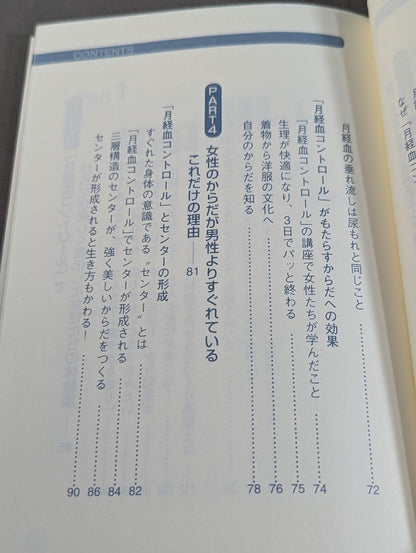 CONTENTS
なぜ「月
月経血の垂れ流しは尿もれと同じこと……72
「月経血コントロール」がもたらすからだへの効果
「月経血コントロール」の講座で女性たちが学んだこと……74
生理が快適になり、3日でパッと終わる……75
着物から洋服の文化へ……76
自分のからだを知る……78
PART4
女性のからだが男性よりすぐれている
これだけの理由——81
「月経血コントロール」とセンターの形成
すぐれた身体の意識である〝センター〟とは……82
「月経血コントロール」でセンターが形成される……84
三層構造のセンターが、強く美しいからだをつくる……86
センターが形成されると生き方もかわる！……90